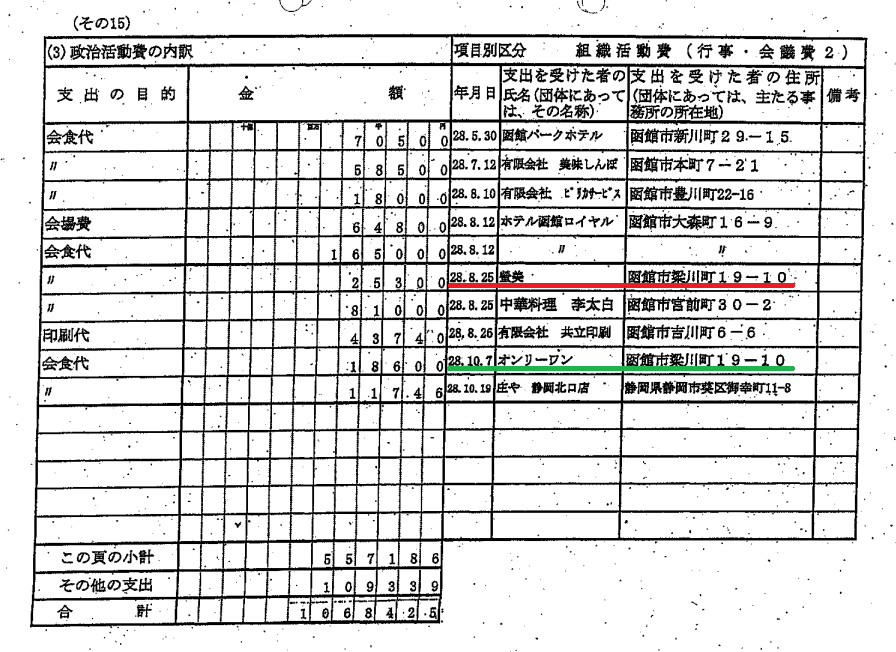 (その15)
(3) 政治活動費の内訳 項目別区分 組織活動費(行事・会議費2)
支出の目的 金額 年月日 支出を受けた者の氏名(団体にあっては、その名称) 支出を受けた者の住所(団体にあっては、主たる事務所の所在地) 備考
十億 百万 千 円
会食代 70500 28.5.30 函館パークホテル 函館市新川町29-15
〃 58500 28.7.12 有限会社 美味しんぼ 函館市本町7-21
〃 18000 28.8.10 有限会社 ピリカサービス 函館市豊川町22-16
会場費 64800 28.8.12 ホテル函館ロイヤル 函館市大森町16-9
会食代 165000 28.8.12 〃 〃
〃 25300 28.8.25 螢美 函館市梁川町19-10
〃 81000 28.8.25 中華料理 李太白 函館市宮前町30-2
印刷代 43740 28.8.26 有限会社 共立印刷 函館市吉川町6-6
会食代 18600 28.10.7 オンリーワン 函館市梁川町19-10
〃 11746 28.10.19 庄や 静岡北口店 静岡県静岡市葵区御幸町11-8
この頁の小計 557186
その他の支出 109339
合計 1068425